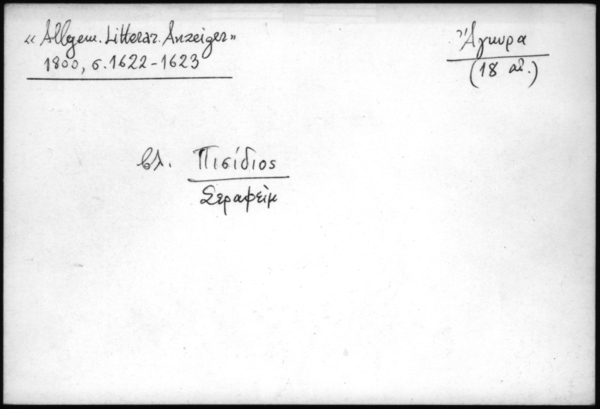 « Allgem. Litterar. Anzeiger»
1800, σ. 1622-1623
Ἄγκυρα
(18 αἰ.)
βλ. Πισίδιος
Σεραφείμ